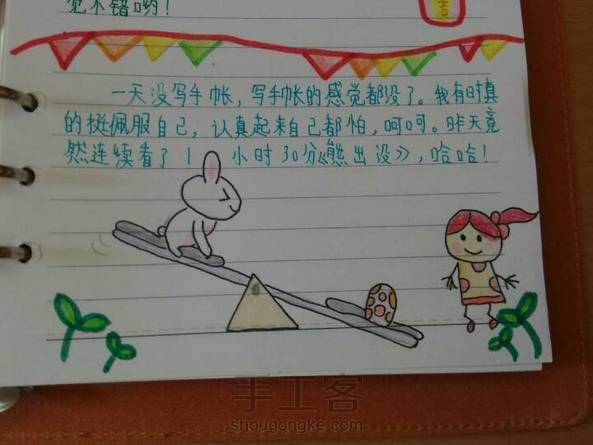 觉不错哟！
吉
一天没写手帐，写手帐的感觉都没了。我有时真
的挺佩服自己，认真起来自己都怕，呵呵。昨天竟
然连续看了1小时30分《熊出没》，哈哈！
手工客
shougongke.com